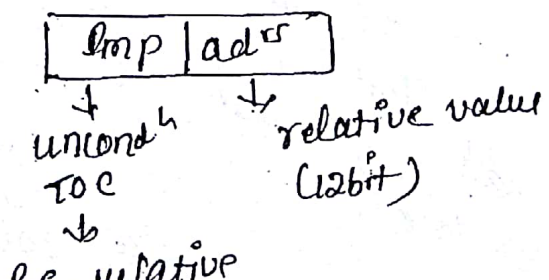 Jmp | adrs
uncondn relative value
TOC (12bit)
Pc relative